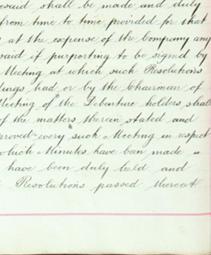 said shall be made and duly
from time to time provided for that
at the expense of the Company any
said if purporting to be signed by
Meeting at which such Resolutions
had or by the Chairman of
Meeting of the Debenture holders shall
of the matters therein stated and
proved every such Meeting in respect
which Minutes have been made
have been duly held and
Resolutions passed thereat